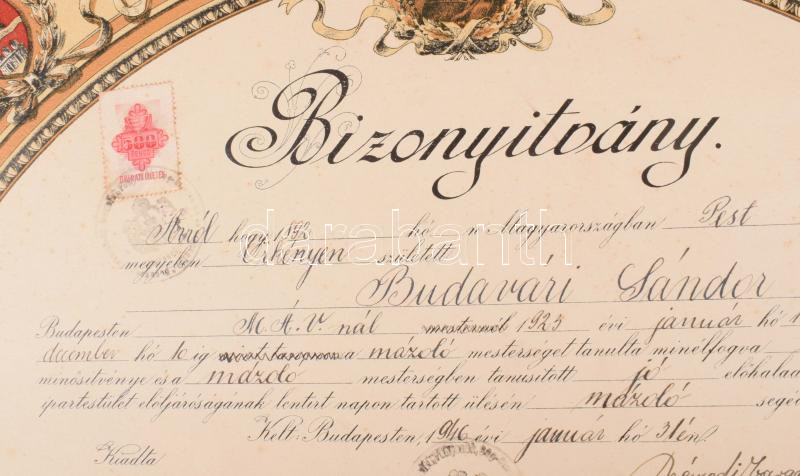 Bizonyitvány.
500
PENGŐ
OKIRATI ILLETÉK
Arról hogy, 189 hó n Magyarországban Pest
megyében Örkényen született
Budavári Sándor
Budapesten M.Á.V. nál mesternél 1925 évi január hó 1
december hó 10 ig a mázoló mesterséget tanulta minélfogva
minősitvénye és a mázoló mesterségben tanusitott jó előhalad
ipartestület elöljáróságának lentirt napon tartott ülésén mázoló segéd
Kelt: Budapesten, 1946 évi január hó 31én.
Kiadta
darabanth.com